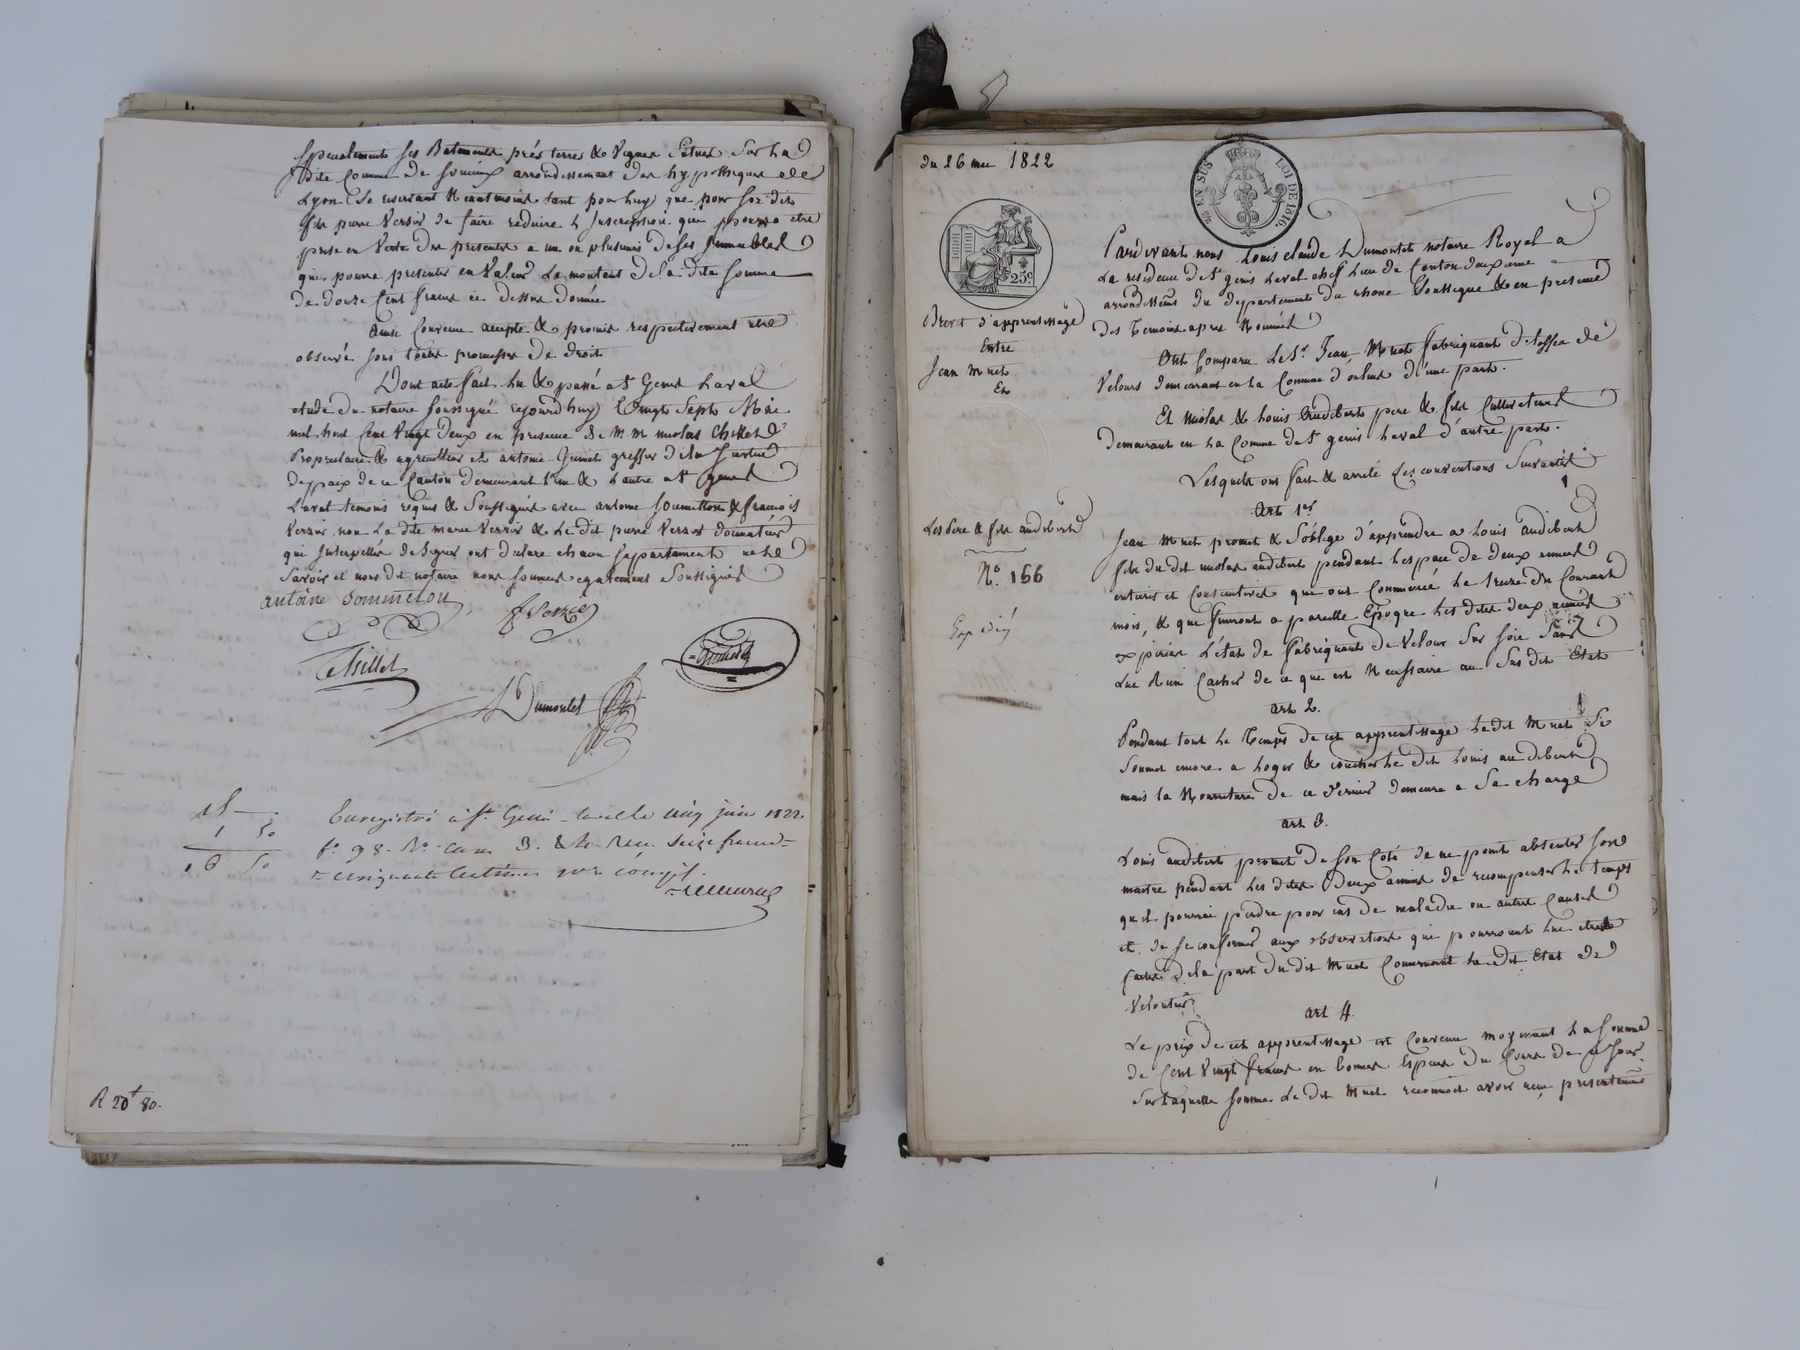 specialement ses Batiments près terres & Vignes situés sur la
dite Commune de arrondissement des hypotheques de
Lyon Se reservant Neantmoins tant pour luy que pour son dit
fils pierre Verzier de faire reduire l'Inscription qui pourra etre
prise en Vertu des presentes a un ou plusieurs de ses Immeubles
qui pourra presenter en Valeur Le montant de la dite somme
de douze Cent francs ci dessus donnée
Ainsi Convenu accepté & promis respectivement etre
observé sous toutes promesses de droit
Dont acte fait Lu & passé a St Genis Laval
etude du notaire soussigné cejourd'huy Vingt Sept Mai
mil huit Cent Vingt deux en presence de M. M. nicolas Chillet
Proprietaire & agriculteur et antoine greffier de la Justice
de paix de ce Canton demeurant l'un & L'autre a St genis
Laval temoins requis & Soussignés avec antoine Sommetton & francois
Verzier non La dite marie Verzier & Le dit pierre Verzier donnateur
qui Interpellés de Signer ont declaré chacun separtement ne le
Savoir et nous dit notaire nous sommes egalement Soussignés
antoine Sommeton
Chillet
Dumortet
18
1 50
16 50
Enregistré à St. Genis-laval le cinq juin 1822.
fo 98. Ro. Case 3. & 4. Reçu Seize francs
cinquante centimes
R 20f 80.
du 26 mai 1822
25 EN SUS LOI DE 1816.
25c.
Brevet d'apprentissage
Entre
Jean Muet
Et
Les Pere & fils audibert
No. 166
Expedié
Pardevant nous Louis claude Dumortet notaire Royal a
La residence de St genis Laval chef Lieu de Canton deuxieme
arrondissems du departement du rhone Soussigné & en presence
des Temoins apres Nommés
Ont Comparu Le Sr Jean Muet fabriquant d'etoffes de
Velours demeurant en La Commune d'oulins d'une part.
Et nicolas & Louis Audibert pere & fils Cultivateurs
demeurant en La Commune de St genis Laval d'autre part.
Lesquels ont fait & arreté Les conventions Suivantes
Art 1er
Jean Muet promet & S'oblige d'apprendre a Louis audibert
fils du dit nicolas audibert pendant L'espace de deux années
entieres et Consecutives qui ont Commencé Le treize du Courant
mois, & qui finiront a pareille Epoque Les dites deux années
expirées L'état de fabriquant de Velour Sur Soie Sans
Lui Rien Cacher de ce que est Necessaire au Sus dit Etat
art 2.
Pendant tout Le Temps de cet apprentissage Le dit Muet Se
Soumet encore a Loger & coucher Le dit Louis audibert
mais la Nourriture de ce dernier demeure a Sa charge
art 3.
Louis audibert promet de Son Coté de ne point absenter Son
maitre pendant Les dites deux années de recompenser Le temps
qu'il pourrai perdre pour cas de maladie ou autres Causes
et de Se conformer aux observations qui pourroient Lui etre
faites de la part du dit Muet Concernant Le dit Etat de
Veloutier
art 4.
Le prix de cet apprentissage est Convenu moyennant La Somme
de Cent Vingt francs en bonnes Especes du Cours de ce Jour.
Sur Laquelle Somme Le dit Muet reconnoit avoir reçu presentement